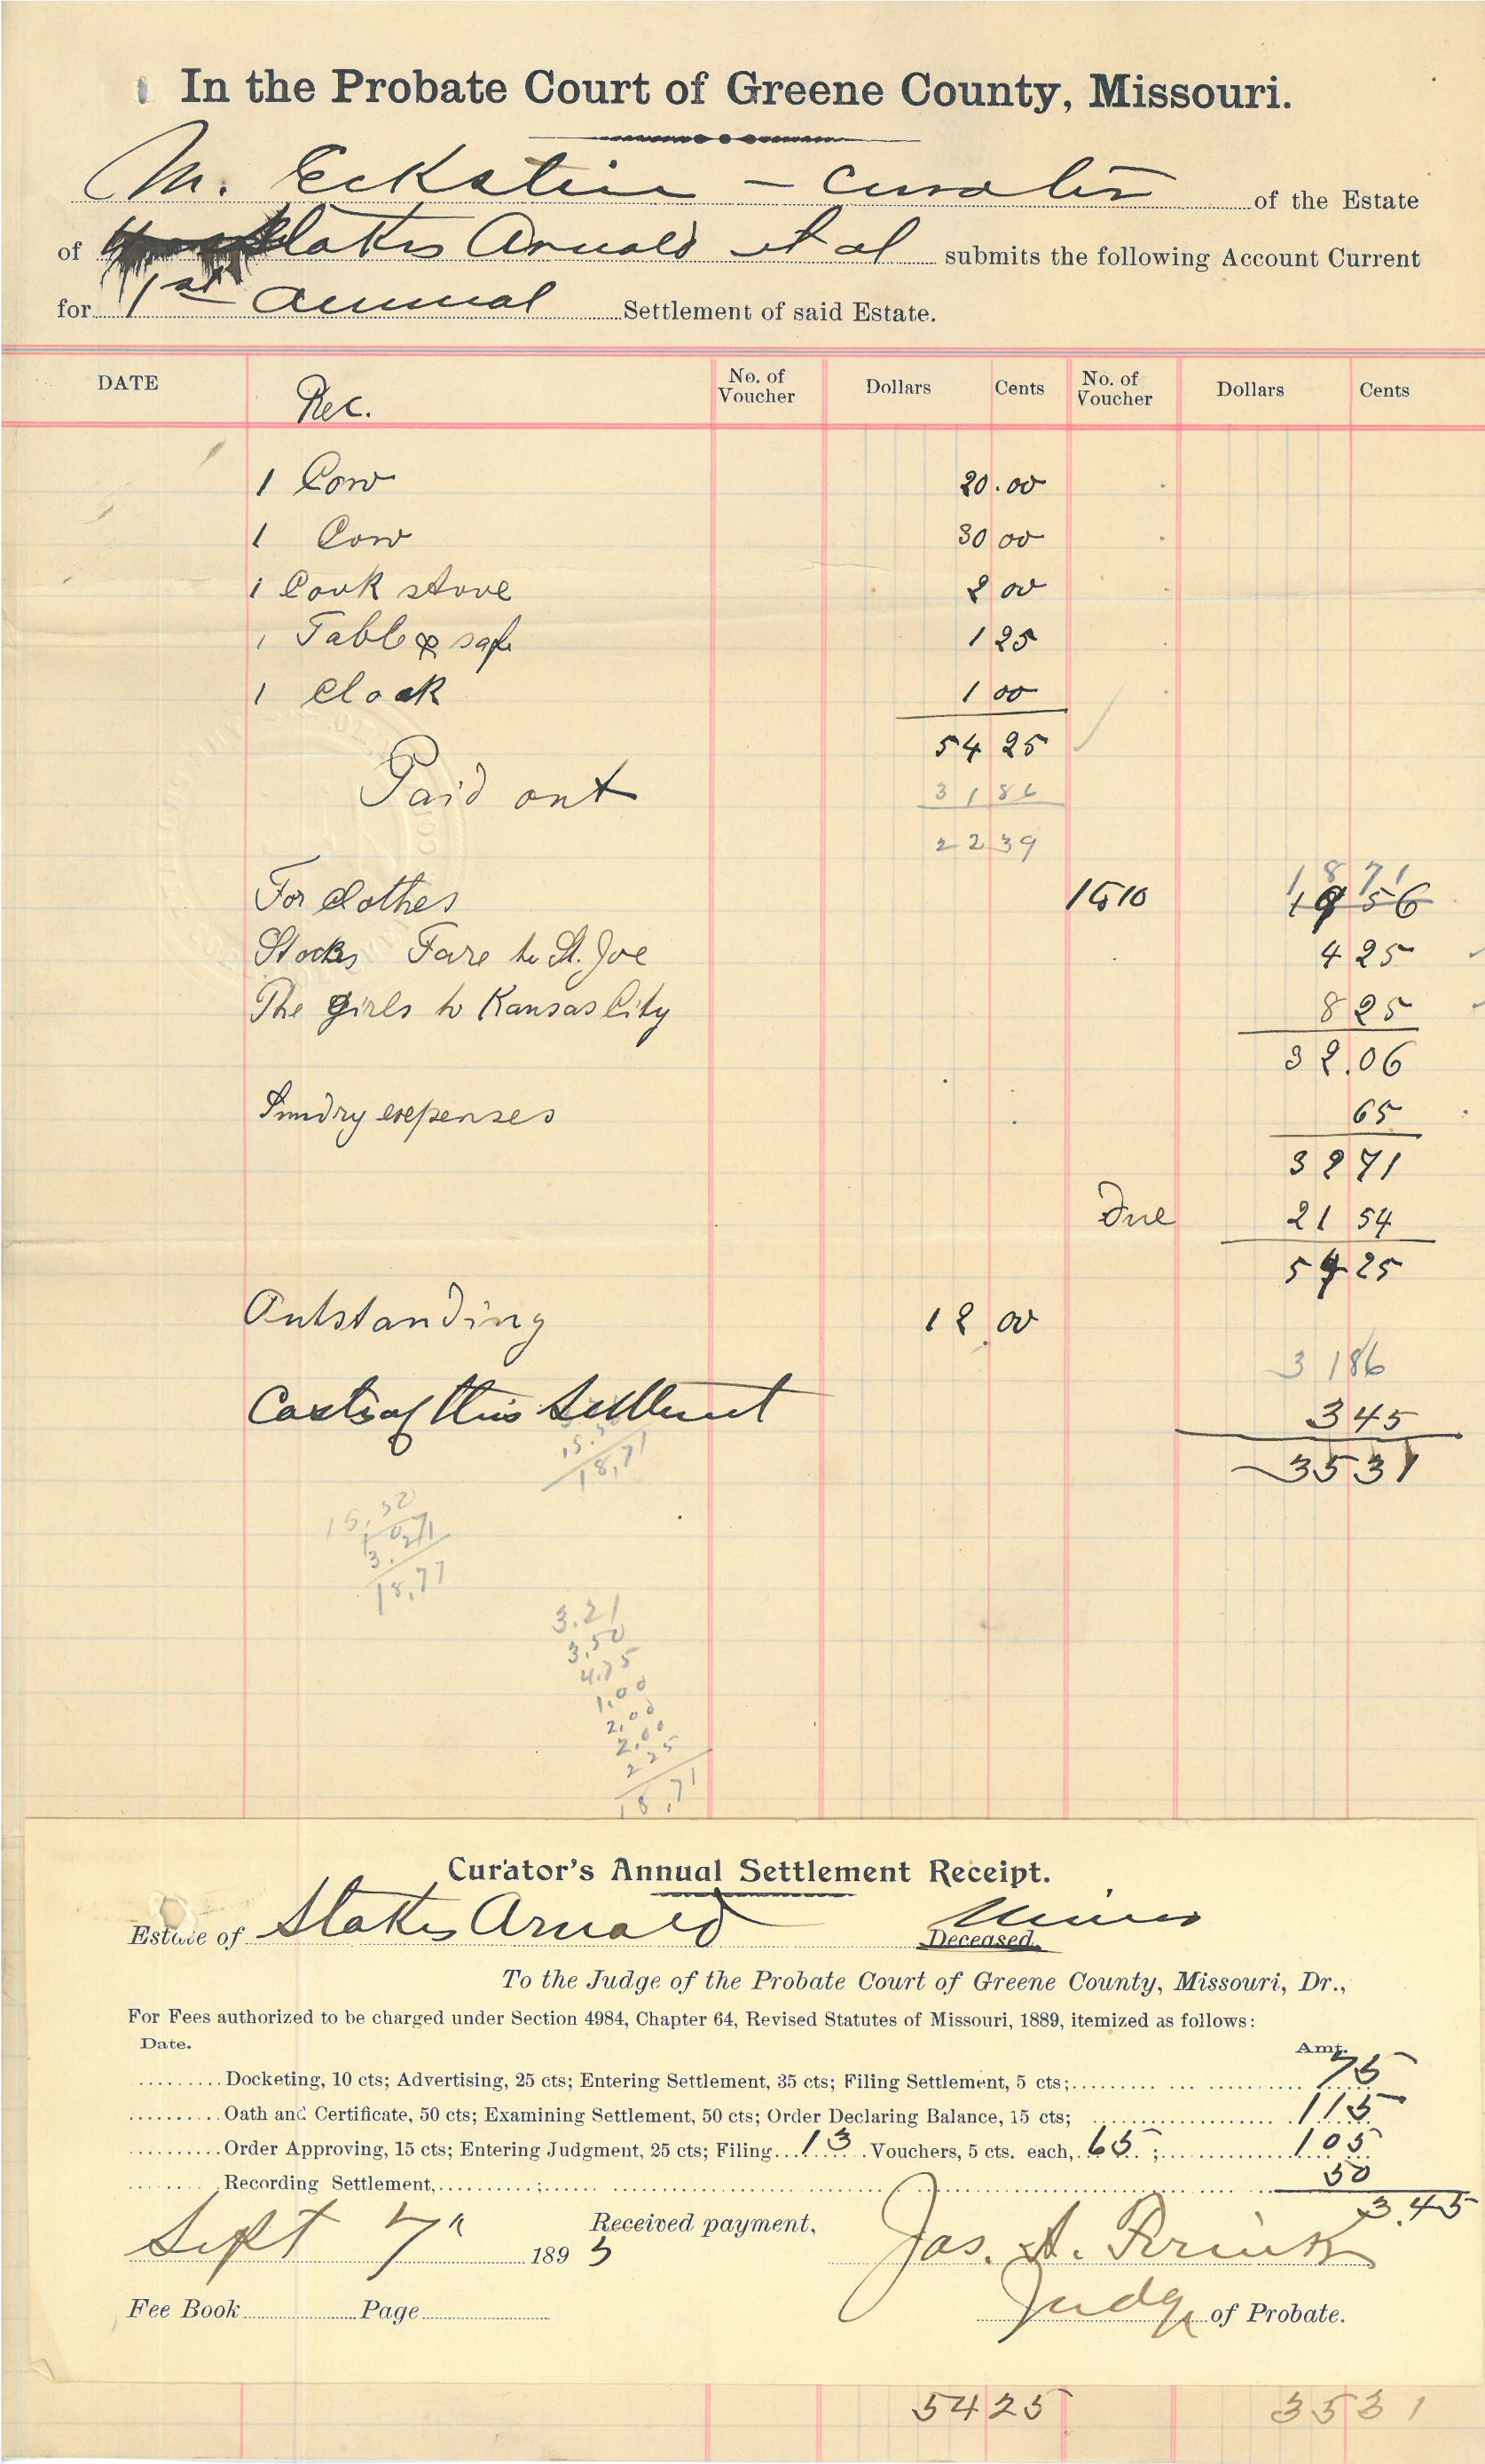 In the Probate Court of Greene County, Missouri.
M. Eckstein - curator of the Estate
of Stokes Arnold et al submits the following Account Current
for 1st annual Settlement of said Estate.
DATE Rec. No. of Voucher Dollars Cents No. of Voucher Dollars Cents
1 Cow 20.00
1 Cow 30 00
1 Cook stove 2 00
1 Table & safe 1 25
1 Clock 1 00
54 25
Paid out 31 86
22 39
18 71
For clothes 19 56
Stocks Fare to St. Joe 4 25
The girls to Kansas City 8 25
32.06
Sundry expenses 65
32 71
Due 21 54
54 25
Outstanding 12.00
31 86
Costs of this Settlement 3 45
35 31
18,71
15,50
18,77
3.21
3.50
4.75
1.00
2.00
2.00
2 25
18,71
Curator's Annual Settlement Receipt.
Estate of Stokes Arnold Minor Deceased.
To the Judge of the Probate Court of Greene County, Missouri, Dr.,
For Fees authorized to be charged under Section 4984, Chapter 64, Revised Statutes of Missouri, 1889, itemized as follows:
Date. Amt.
Docketing, 10 cts; Advertising, 25 cts; Entering Settlement, 35 cts; Filing Settlement, 5 cts; 75
Oath and Certificate, 50 cts; Examining Settlement, 50 cts; Order Declaring Balance, 15 cts; 115
Order Approving, 15 cts; Entering Judgment, 25 cts; Filing 13 Vouchers, 5 cts. each, 65; 105
Recording Settlement, ; 50
3.45
Sept 7" 1895 Received payment, Jas. A.
Judge of Probate.
Fee Book Page
54 25 35 31